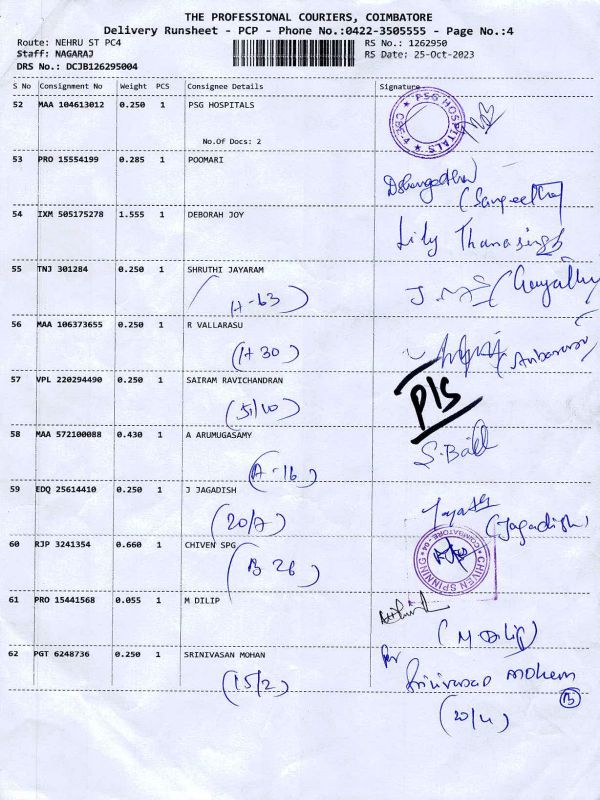 THE PROFESSIONAL COURIERS, COIMBATORE
Delivery Runsheet - PCP - Phone No.:0422-3505555 - Page No.:4
Route: NEHRU ST PC4 RS No.: 1262950
Staff: NAGARAJ RS Date: 25-Oct-2023
DRS No.: DCJB126295004
S No Consignment No Weight PCS Consignee Details Signature
52 MAA 104613012 0.250 1 PSG HOSPITALS
PSG HOSPITALS
CBE-4
No.Of Docs: 2
53 PRO 15554199 0.285 1 POOMARI
(Sangeetha)
54 IXM 505175278 1.555 1 DEBORAH JOY
Lily Thanasingh
55 TNJ 301284 0.250 1 SHRUTHI JAYARAM
(H-63)
(Gayathri
56 MAA 106373655 0.250 1 R VALLARASU
(H 30)
(Anbarasu)
57 VPL 220294490 0.250 1 SAIRAM RAVICHANDRAN
P/S
(5/10)
58 MAA 572100088 0.430 1 A ARUMUGASAMY
S.Ball
(A-16)
59 EDQ 25614410 0.250 1 J JAGADISH
(20/7)
(Jagadish)
60 RJP 3241354 0.660 1 CHIVEN SPG
(B 26)
CHIVEN SPINNING
COIMBATORE - 04
61 PRO 15441568 0.055 1 M DILIP
(M Dilip)
62 PGT 6248736 0.250 1 SRINIVASAN MOHAN
for
Srinivasan Mohan
(15/2)
(20/4)
B